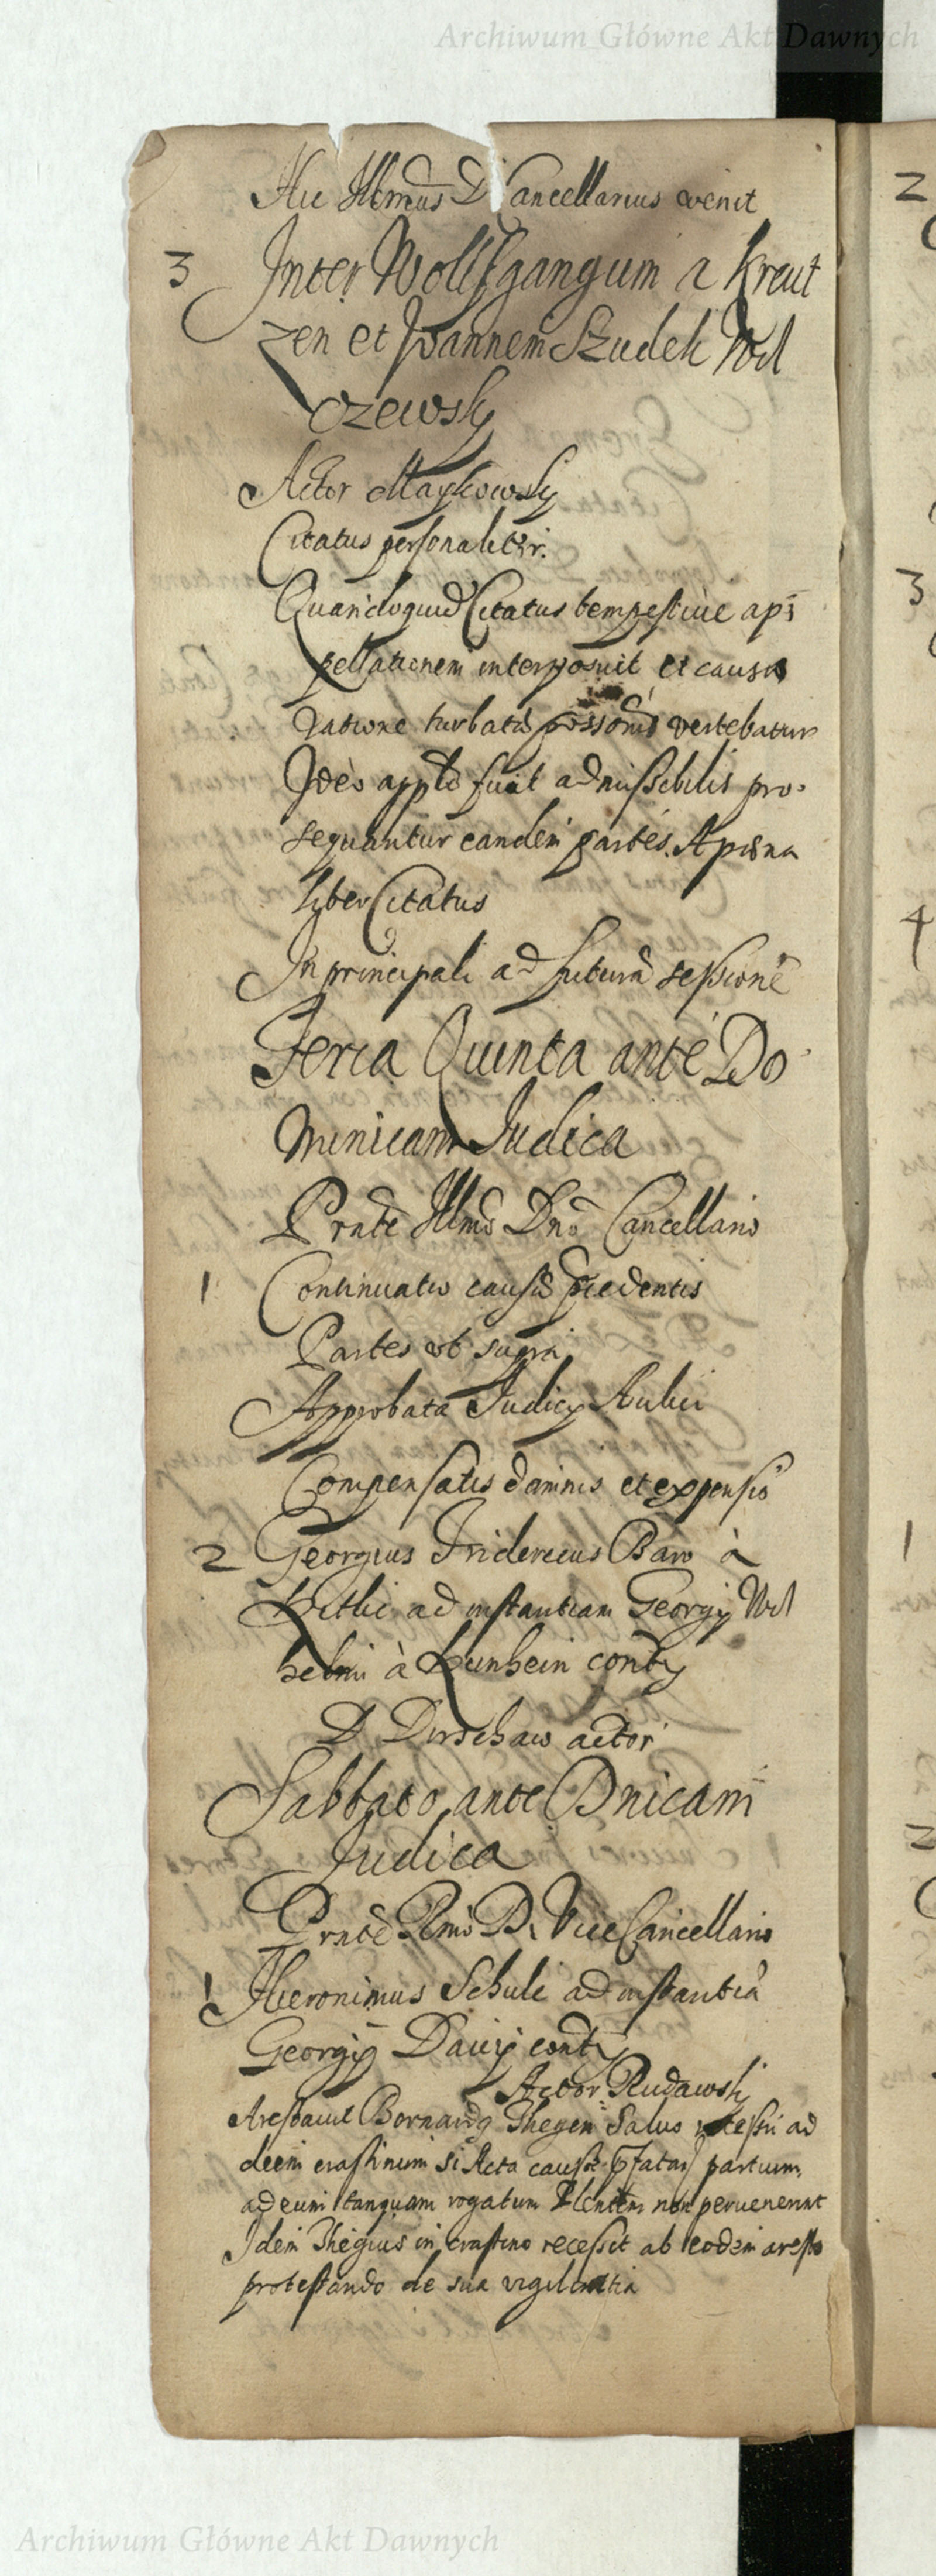 Archiwum Główne Akt Dawnych
Hic Illmus D Cancellarius venit
3 Inter Wolffgangum a Kreut
zen et Joannem Szudek Wil
czewsky
Actor Maykowsky
Citatus personaliter.
Quandoquid Citatus tempestive ap
pellationem interposuit et causa
ratione turbatae possonis vertebatur
Ideo applo fuit admissibilis pro
sequantur eandem partes. A poena
liber Citatus
In principali ad futura sessione
Feria Quinta ante Do
minicam Judica
Prnte Illmo Dno Cancellario
1 Continuatio causae precedentis
Partes ut supra
Approbata Judicy Aulici
Compensatis damnis et expensis
2 Georgius Fridericus Baro à
Kitlic ad instantiam Georgy Wil
helmi à Kunhein condy
D Dirschaw actor
Sabbato ante Dnicam
Judica
Prnte Rmo D. ViceCancellario
1 Hieronimus Schulc ad instantia
Georgy Davy condy
Actor Rudawsky
Arestavit Bernardg Thegen Salvo recessu ad
diem crastinum si Acta causae partium
ad eum tanquam rogatum non pervenerint
Idem Thegius in crastino recessit ab eodem aresto
protestando de sua vigilantia
2
3
4
1
2
Archiwum Główne Akt Dawnych